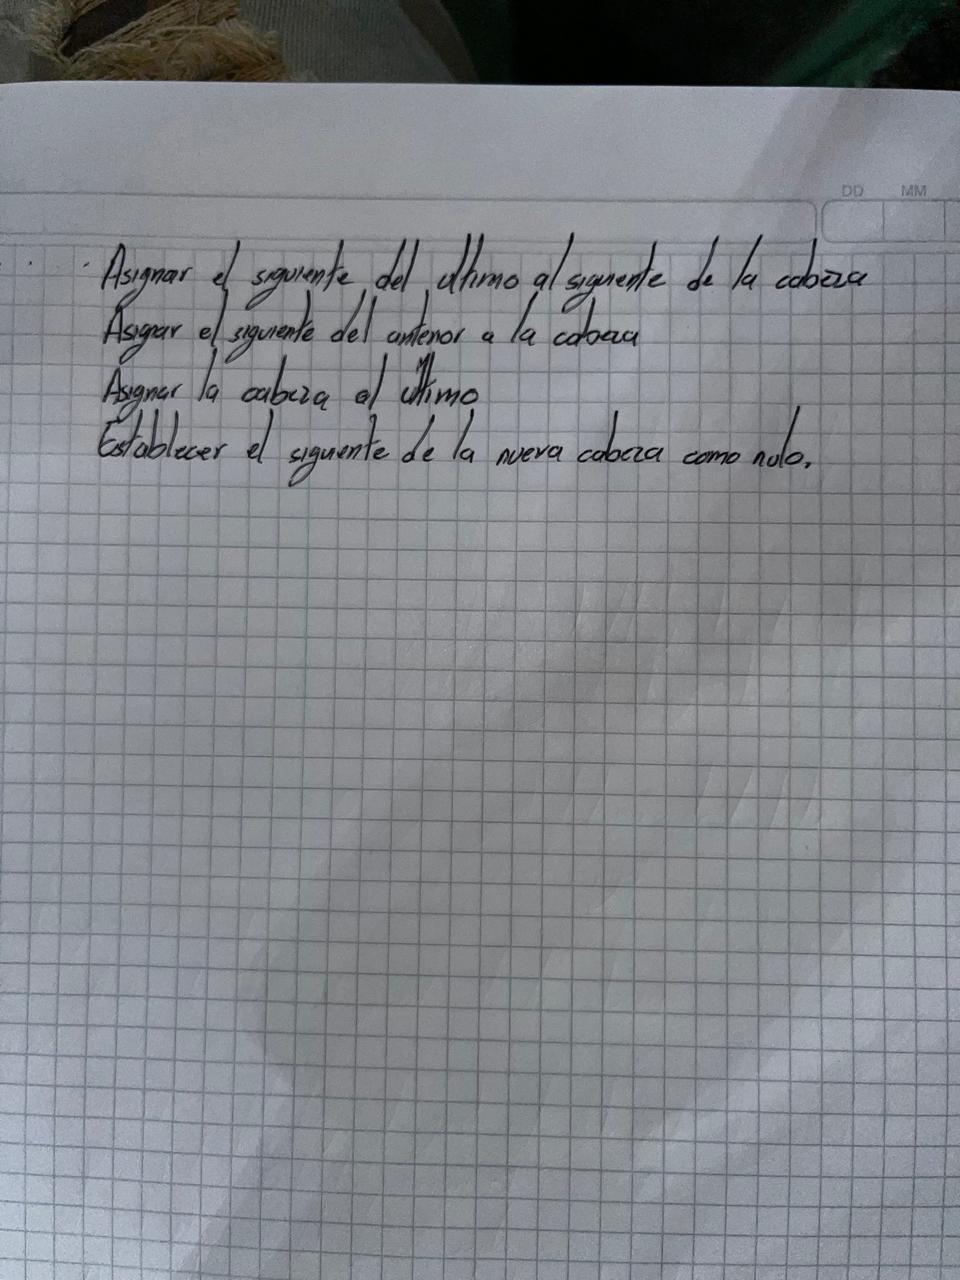 DD MM
Asignar el siguiente del último al siguiente de la cabeza
Asignar el siguiente del anterior a la cabeza
Asignar la cabeza al último
Establecer el siguiente de la nueva cabeza como nulo.